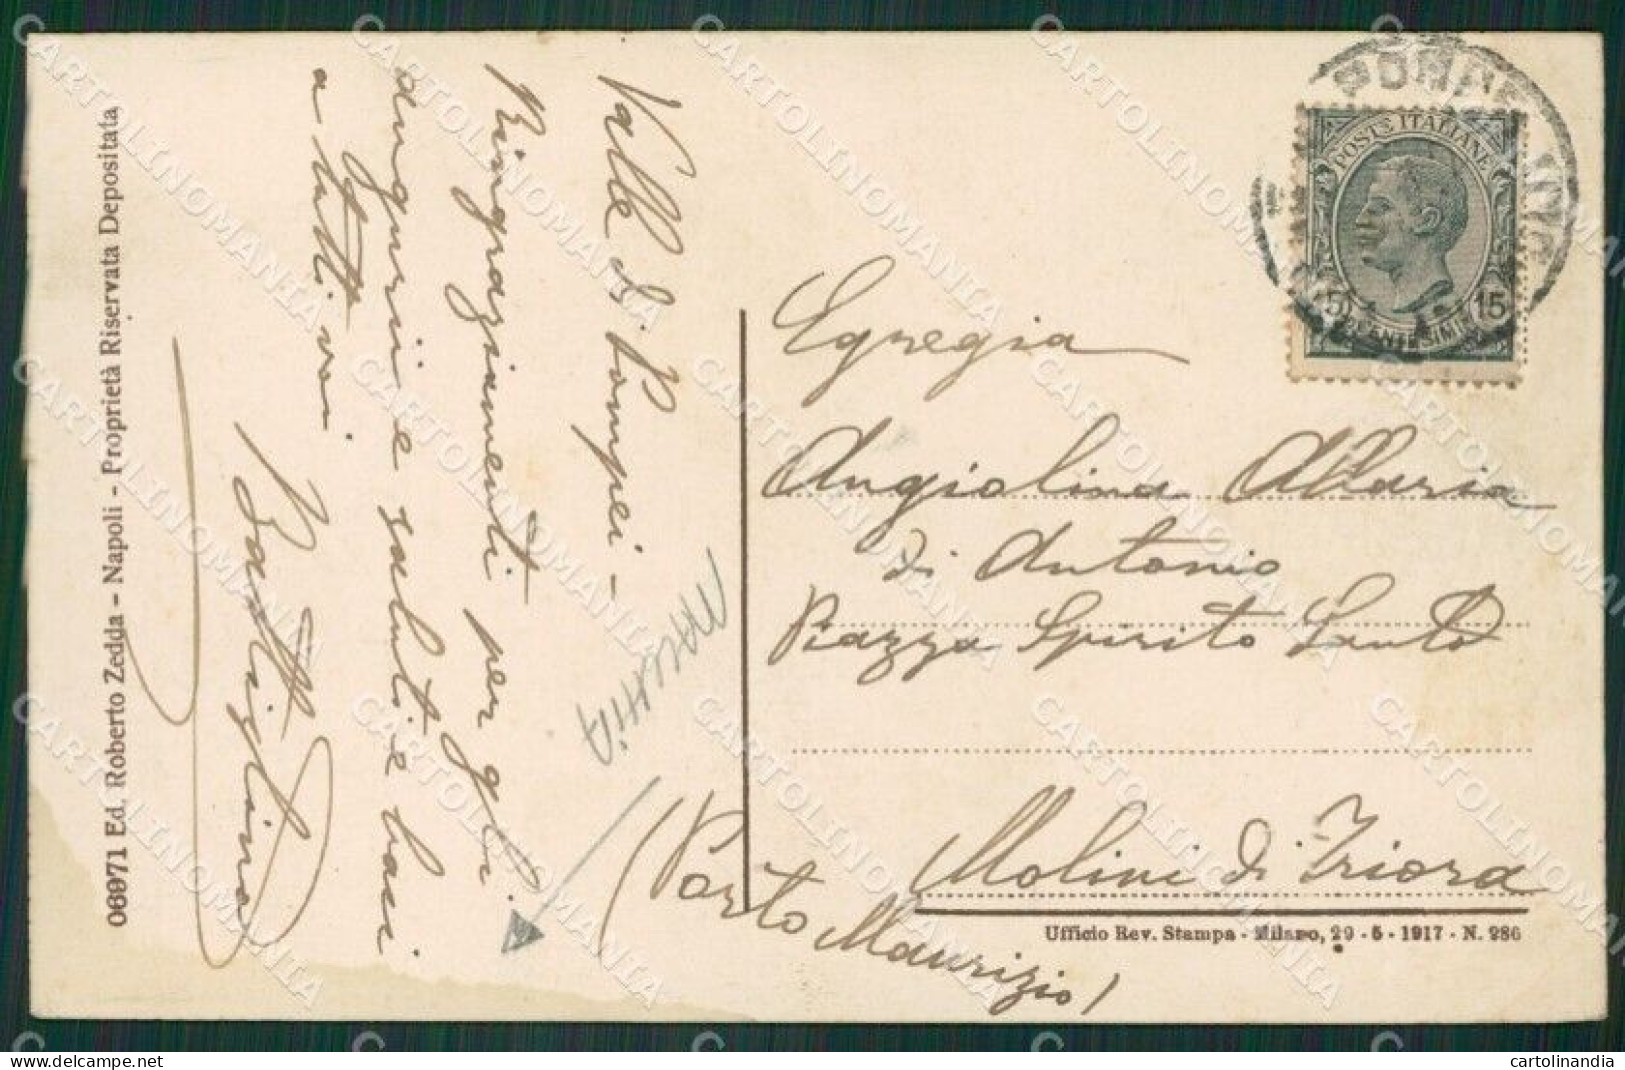 06971 Ed. Roberto Zedda - Napoli - Proprietà Riservata Depositata
Valle di Pompei -
Ringraziamenti per gli
augurii e saluti e baci
a tutti voi
Battiglina
POSTE ITALIANE
15 CENTESIMI 15
Egregia
Angiolina Allaria
di Antonio
Piazza Spirito Santo
Molini di Triora
(Porto Maurizio)
Ufficio Rev. Stampa - Milano, 29 - 5 - 1917 - N. 286
CARTOLINOMANIA
cartolinandia